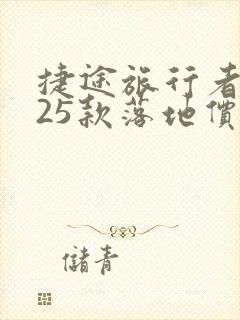 捷途旅行者
25款落地價
儲青